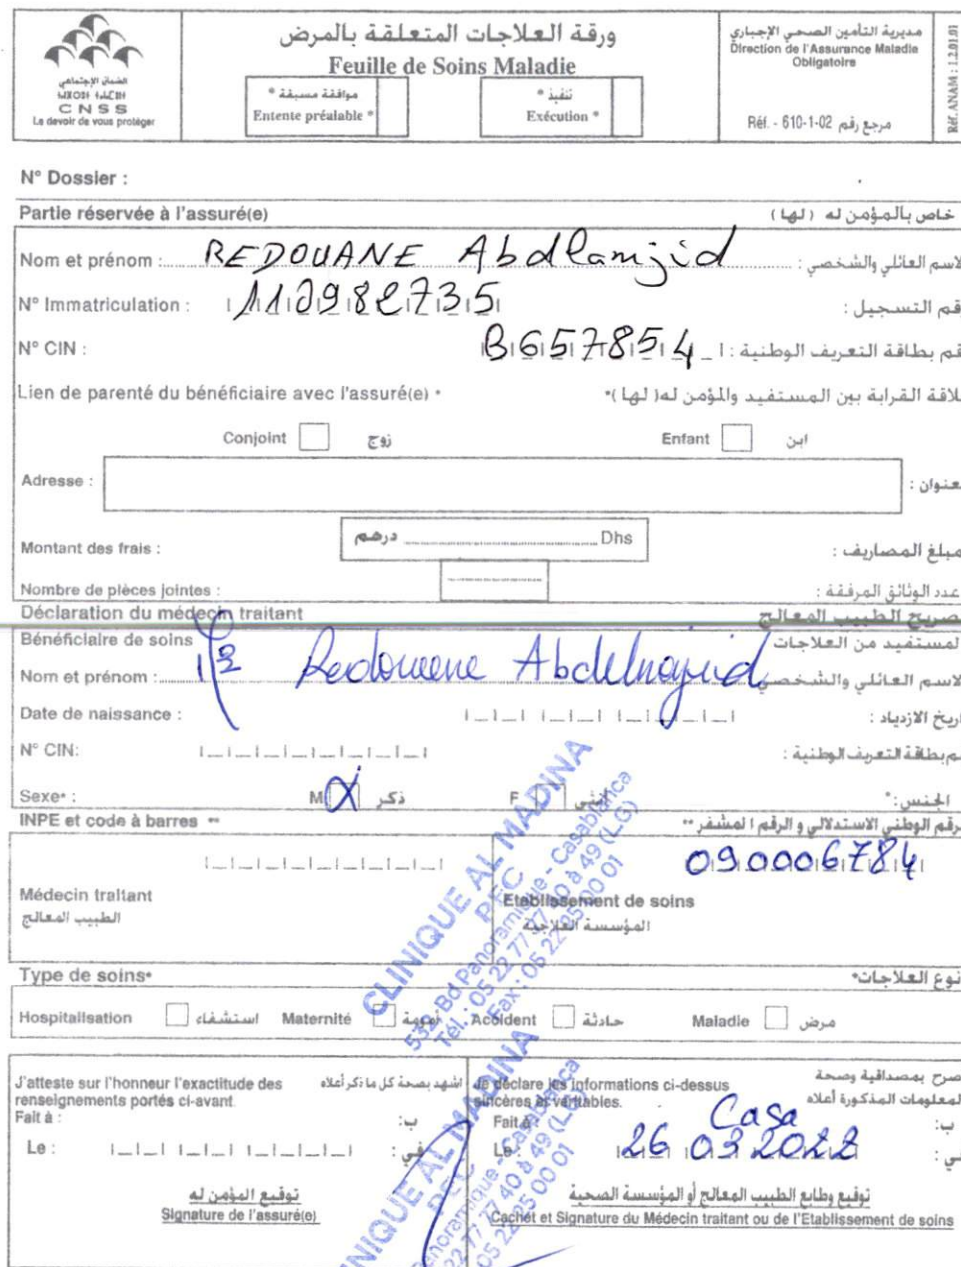 الضمان الإجتماعي
CNSS
Le devoir de vous protéger
ورقة العلاجات المتعلقة بالمرض
Feuille de Soins Maladie
موافقة مسبقة *
Entente préalable *
تنفيذ *
Exécution *
مديرية التأمين الصحي الإجباري
Direction de l'Assurance Maladie
Obligatoire
Réf. - 610-1-02 مرجع رقم
Réf. ANAM : 1.2.01.01
N° Dossier :
Partie réservée à l'assuré(e) خاص بالمؤمن له (لها)
Nom et prénom : REDOUANE Abdlamjid لاسم العائلي والشخصي :
N° Immatriculation : 119982735 قم التسجيل :
N° CIN : B657854 قم بطاقة التعريف الوطنية :
Lien de parenté du bénéficiaire avec l'assuré(e) * لاقة القرابة بين المستفيد والمؤمن له( لها )*
Conjoint زوج Enfant ابن
Adresse : عنوان :
Montant des frais : درهم Dhs مبلغ المصاريف :
Nombre de pièces jointes : عدد الوثائق المرفقة :
Déclaration du médecin traitant صريح الطبيب المعالج
Bénéficiaire de soins لمستفيد من العلاجات
Nom et prénom : Redouene Abdelmajid لاسم العائلي والشخصي
Date de naissance : اريخ الازدياد :
N° CIN: م بطاقة التعريف الوطنية :
Sexe* : M X ذكر F أنثى الجنس :*
INPE et code à barres ** رقم الوطني الاستدلالي و الرقم المشفر **
090006784
Médecin traitant Etablissement de soins
الطبيب المعالج المؤسسة العلاجية
CLINIQUE AL MADINA
PEC
532, Bd Panoramique - Casablanca
Tél. : 05 22 77 77 40 à 49 (L.G)
Fax : 05 22 25 00 01
Type de soins* نوع العلاجات*
Hospitalisation استشفاء Maternité أمومة Accident حادثة Maladie مرض
J'atteste sur l'honneur l'exactitude des اشهد بصحة كل ما ذكر أعلاه
renseignements portés ci-avant.
Fait à : ب:
Le : في :
توقيع المؤمن له
Signature de l'assuré(e)
Je déclare les informations ci-dessus صرح بمصداقية وصحة
sincères et véritables. لمعلومات المذكورة أعلاه
Fait à : Casa ب:
Le : 26 03 2022 في :
توقيع وطابع الطبيب المعالج أو المؤسسة الصحية
Cachet et Signature du Médecin traitant ou de l'Etablissement de soins
CLINIQUE AL MADINA
PEC
Panoramique - Casablanca
22 77 77 40 à 49 (L.G)
05 22 25 00 01